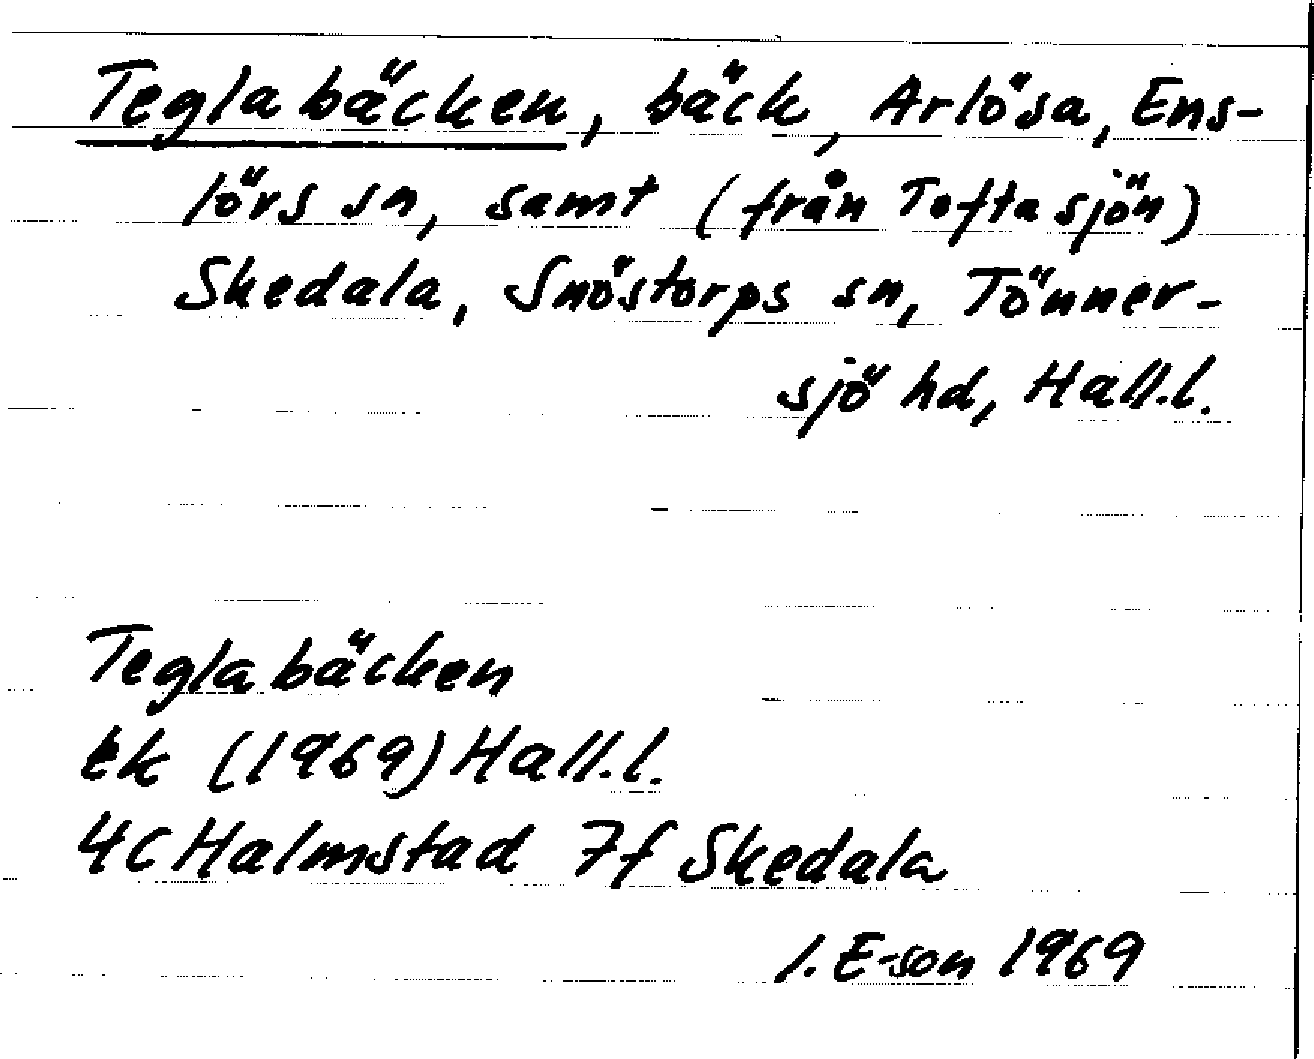 Teglabäcken, bäck, Arlösa, Ens-
lörs sn, samt (från Toftasjön)
Skedala, Snöstorps sn, Tönner-
sjö hd, Hall.l.
Teglabäcken
ek (1969) Hall.l.
4C Halmstad 7f Skedala
I. E-son 1969